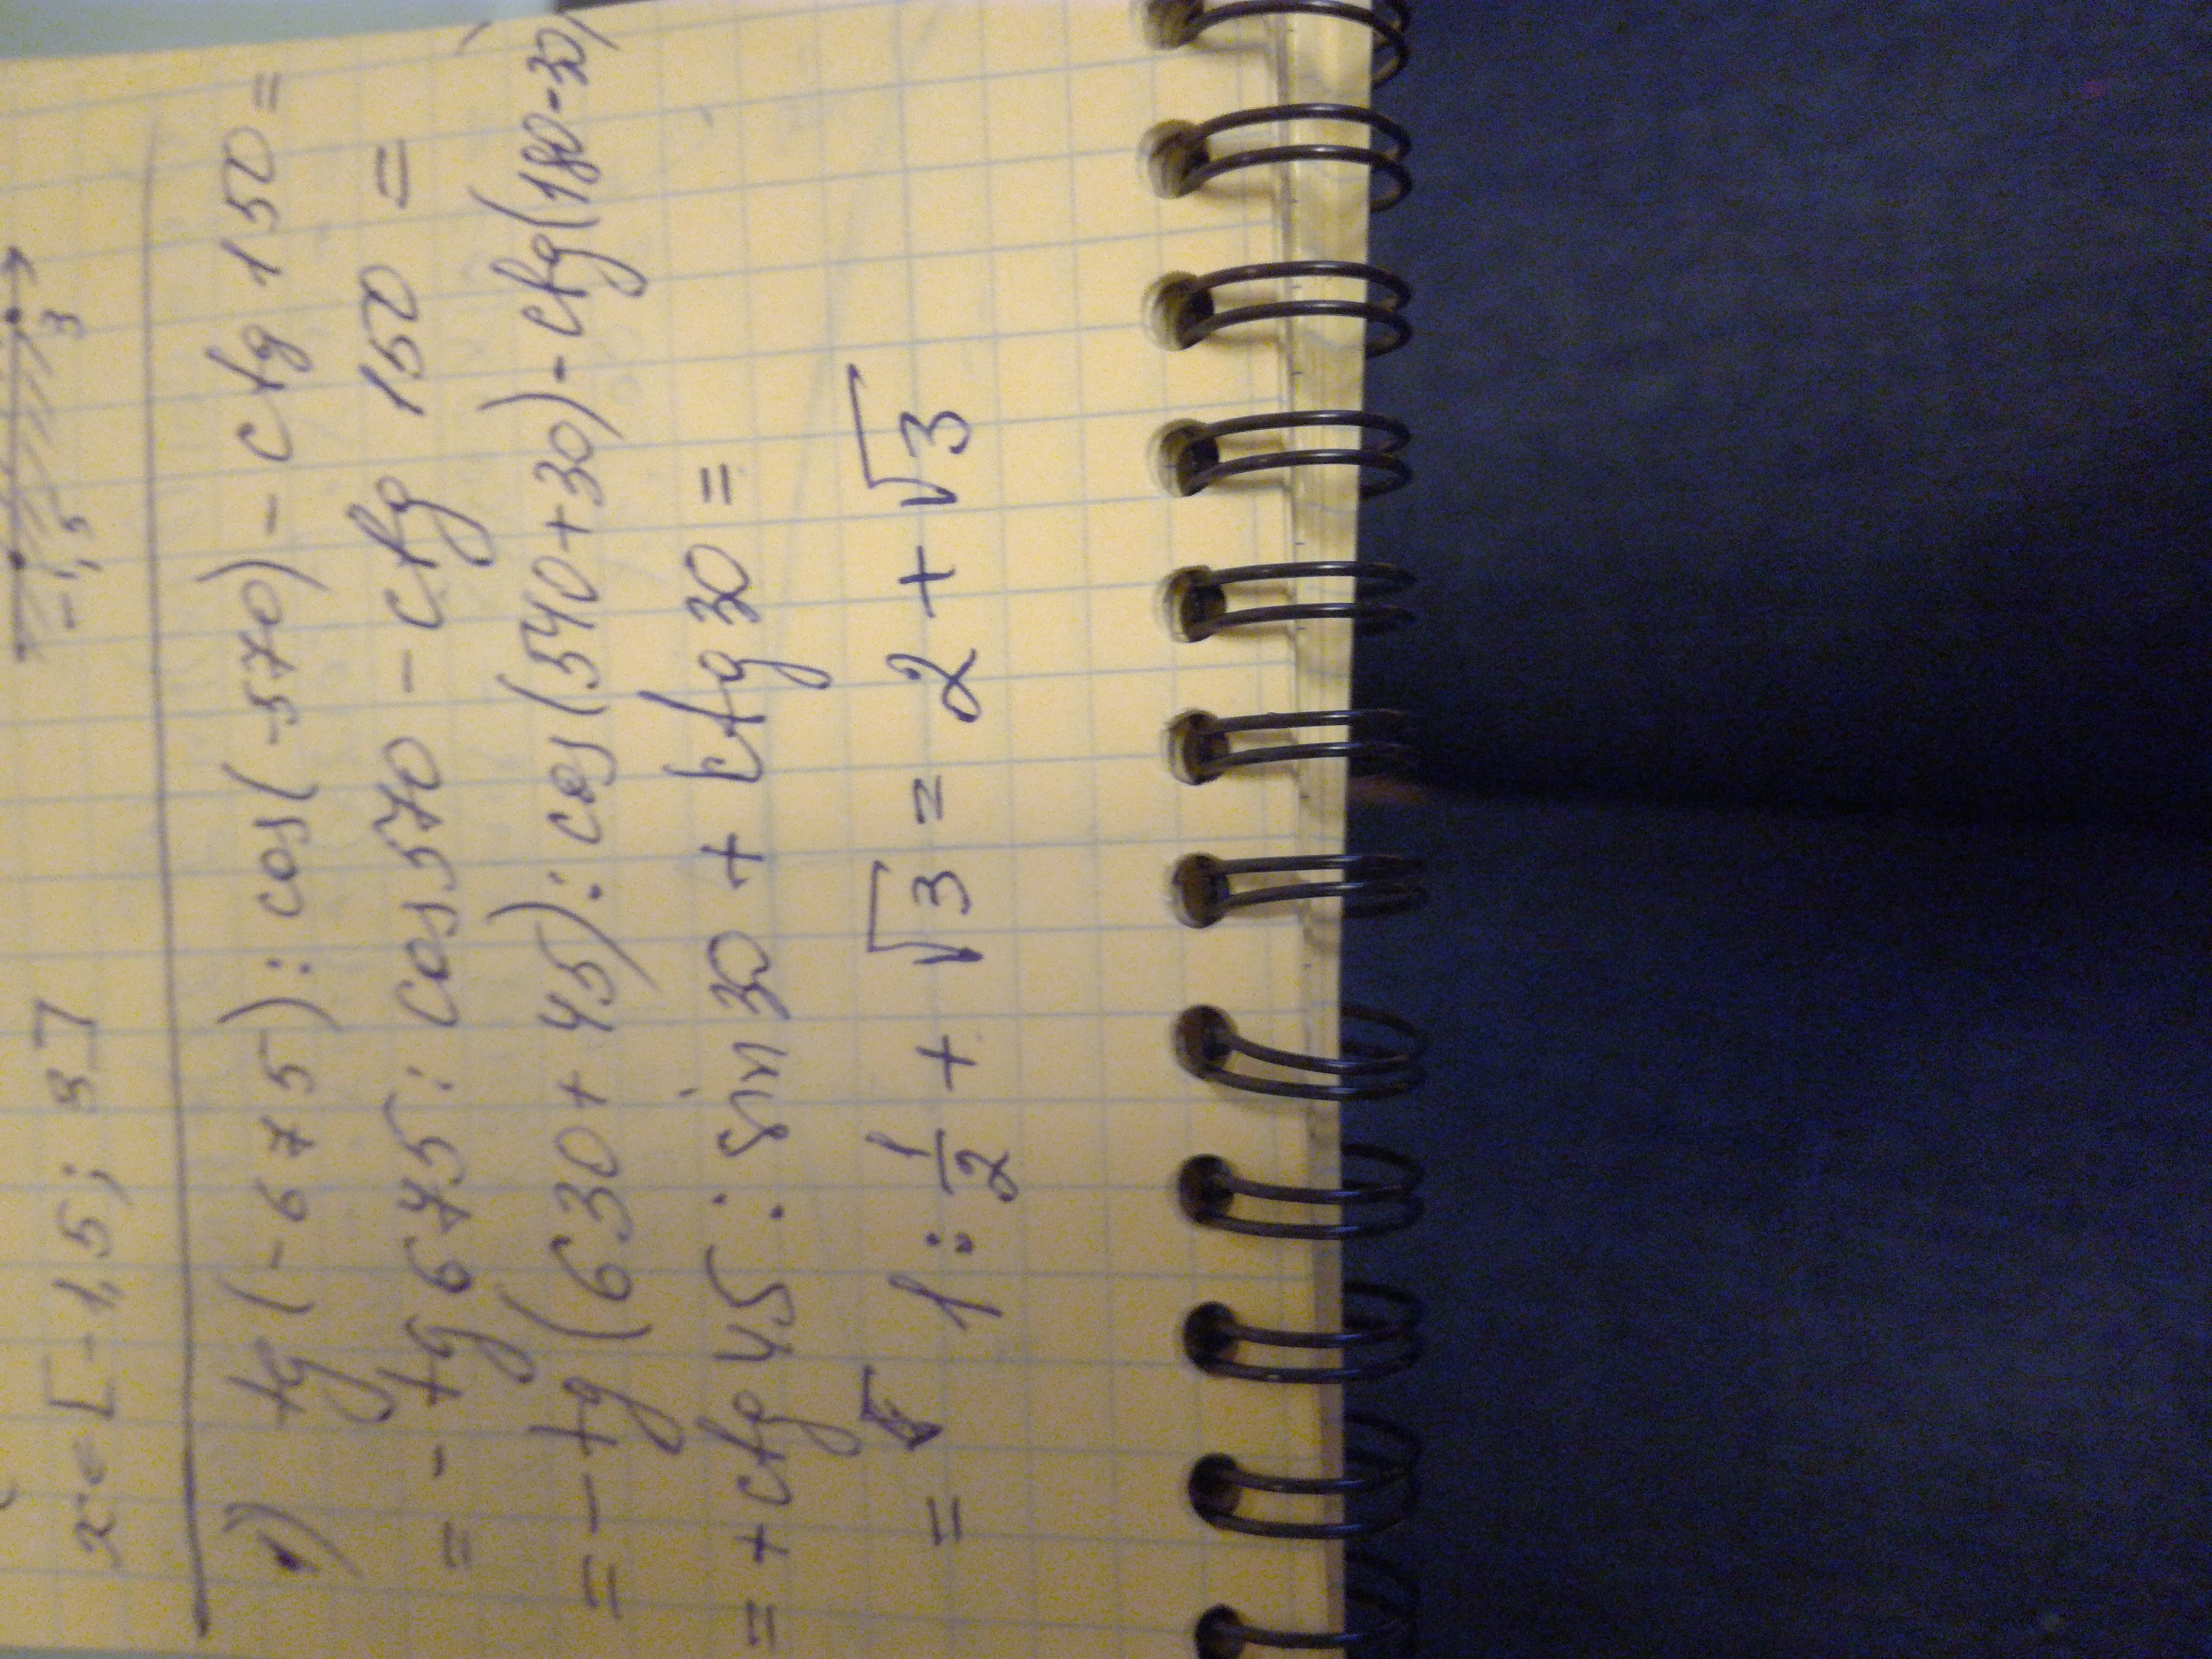 -1,5 3
x ∈ [-1,5; 3]
1) tg(-675):cos(-570)-ctg 150=
=-tg 675: cos 570 - ctg 150 =
=-tg(630+45):cos(540+30)-ctg(180-30)
=+ctg 45: sin 30 + ctg 30 =
= 1:\frac{1}{2} + √3 = 2 + √3